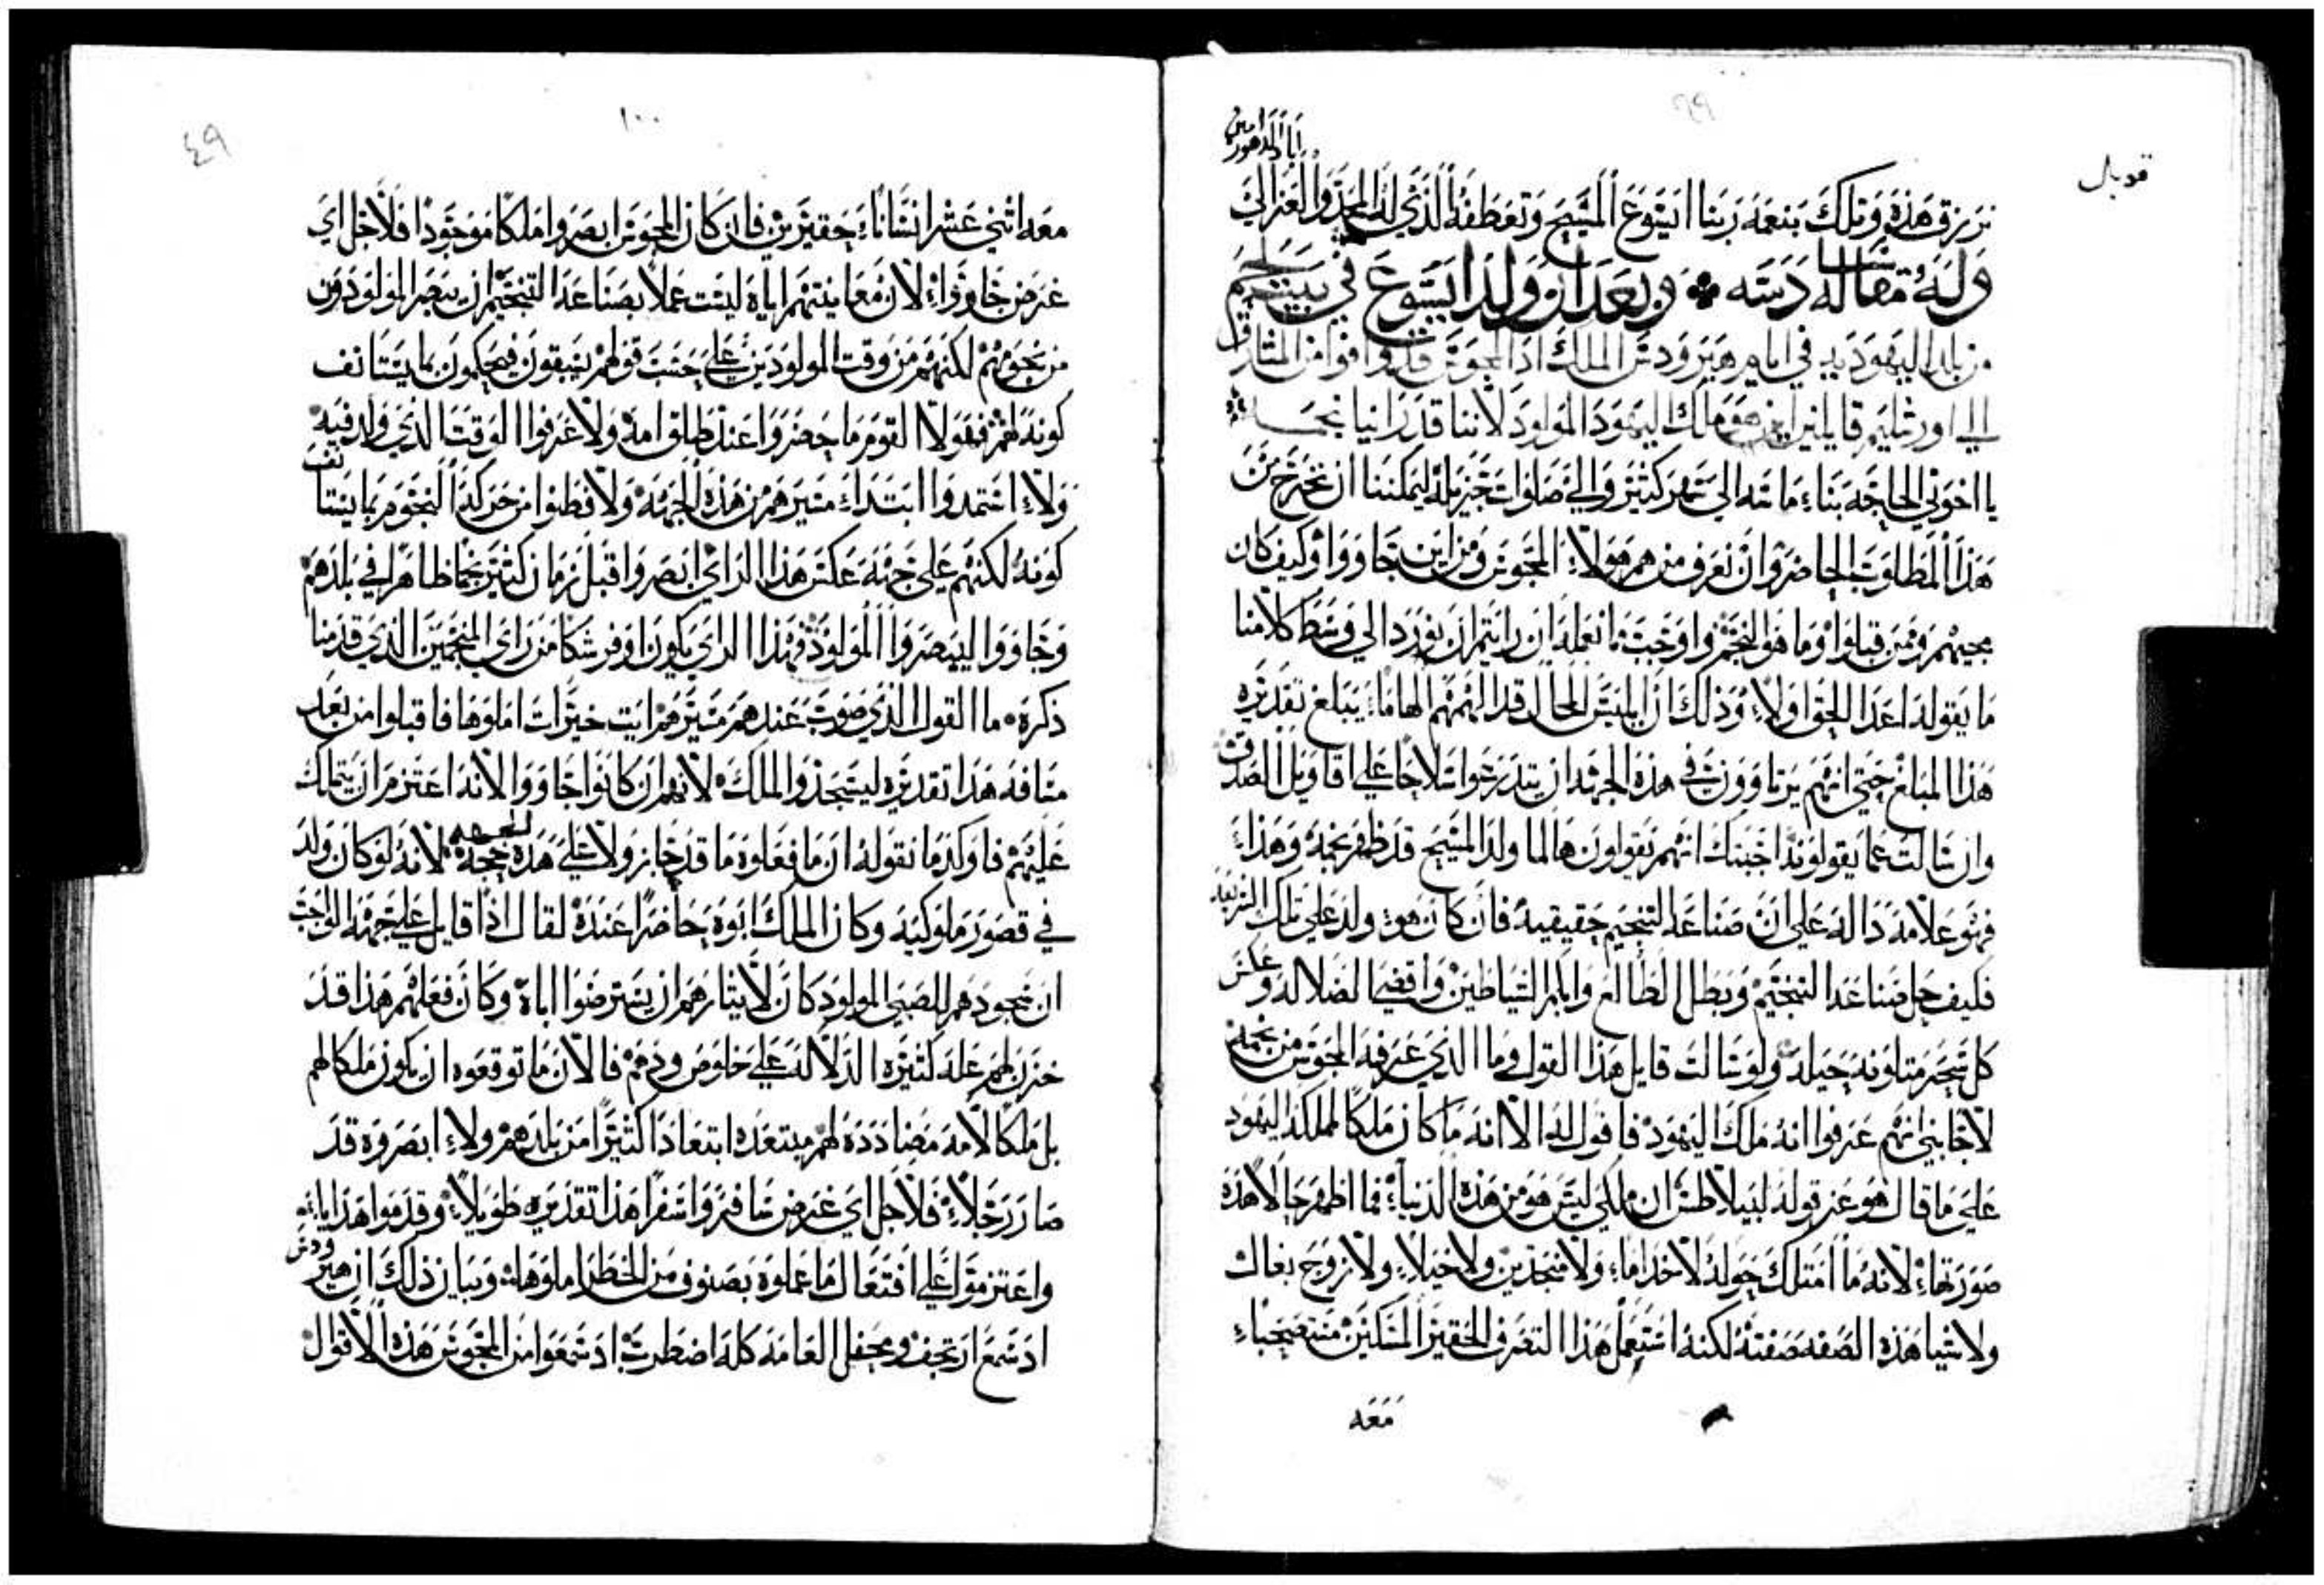 ٩٩
قوبل
نرزق هذه وتلك بنعمة ربنا ايسوع المسيح وتعطفه الذي له المجد والعز الي
اباد الدهور امين
وله مقاله دسه وبعد ان ولد ايسوع في بيت لحم
من بلد اليهوديه في ايام هيرودس الملك اذا المجوس قد وافوا من المشارق
الي اورشليم قايلين اين هو ملك اليهود المولود لاننا قد راينا نجمه
يا اخوتي الحاجه بنا ماسه الي سهر كثير والي صلوات جزيله ليمكننا ان نخرج من
هذا المطلوب الحاضر وان نعرف من هم هولا المجوس ومن اين جاووا وكيف كان
مجيهم وممن قبلوا وما هو النجم واوجب ما نعمله ان رايتم ان نورد الي وسط كلامنا
ما يقوله اعدا الحق اولا وذلك ان ابليس المحال قد الهمهم الهاما يبلغ تقديره
هذا المبلغ حتي انهم يرتاوون في هذه الجهه ان يتدرعوا سلاحا علي اقاويل الصدق
وان سالت عما يقولونه اجبتك انهم يقولون ها لما ولد المسيح قد ظهر نجمه وهذا
فهو علامه داله علي ان صناعه التنجيم حقيقيه فان كان هو ولد علي تلك الشريعه
فكيف حل صناعه التنجيم وبطل الطالع وابكم الشياطين واقصي الضلاله وعكس
كل سحر متلونه حيله ولو سالت قايل هذا القول وما الذي عرفه المجوس من نجمه
لاجابني انهم عرفوا انه ملك اليهود فاقول له الا انه ما كان ملكا لمملكه اليهود
علي ما قال هو عز قوله لبيلاطس ان ملكي ليس هو من هذه الدنيا فما اظهر حالا هذه
صورتها لانه ما امتلك حوله لا خداما ولا منجدين ولا خيلا ولا زوج بغال
ولا شيا هذه الصفه صفته لكنه استعمل هذا التصرف الحقير المسكين مستصحبا
معه
١٠٠
٤٩
معه اثني عشر انسانا حقيرين فان كان المجوس ابصروا ملكا موجودا فلاجل اي
غرض جاووا لان معاينتهم اياه ليست عملا بصناعه التنجيم ان يبصر المولودون
من نجومهم لكنهم من وقت المولودين علي حسب قولهم يسبقون فيحكمون بما يستانف
كونه لهم فهولا القوم ما حضروا عند طلق امه ولا عرفوا الوقت الذي ولد فيه
ولا استمدوا ابتداء مسيرهم من هذه الجهه ولا فطنوا من حركه النجوم بما يستانف
كونه لكنهم علي جهه عكس هذا الراي ابصروا قبل زمان كثير نجما ظاهرا في بلدهم
وجاووا ليبصروا المولود فهذا الراي يكون اوفر شكا من راي المنجمين الذي قدمنا
ذكره ما القول الذي صوب عندهم مسيرهم ايت خيرات املوها فاقبلوا من بعد
مسافه هذا تقديره ليسجدوا للملك لانهم ان كانوا جاووا لانه اعتزم ان يتملك
عليهم فاوكد ما نقوله ان ما فعلوه ما قد جاز ولا علي هذه الجهه حجه لانه لو كان ولد
في قصور ملوكيه وكان الملك ابوه حاضرا عنده لقال اذا قايل علي جهه الواجب
ان سجودهم للصبي المولود كان لايثارهم ان يسترضوا اباه وكان فعلهم هذا قد
خزن لهم عله كثيره الدلاله علي خلوص ودهم فالان ما توقعوه ان يكون ملكا لهم
بل ملكا لامه مضادده لهم مبتعده ابتعادا كثيرا من بلدهم ولا ابصروه قد
صار رجلا فلاجل اي غرض سافروا سفرا هذا تقديره طويلا وقدموا هدايا له
واعتزموا علي افتعال ما عملوه بصنوف من الخطر املوها وبيان ذلك ان هيرودس
اذ سمع ارتجف ومحفل العامه كله اضطرب اذ سمعوا من المجوس هذه الاقوال